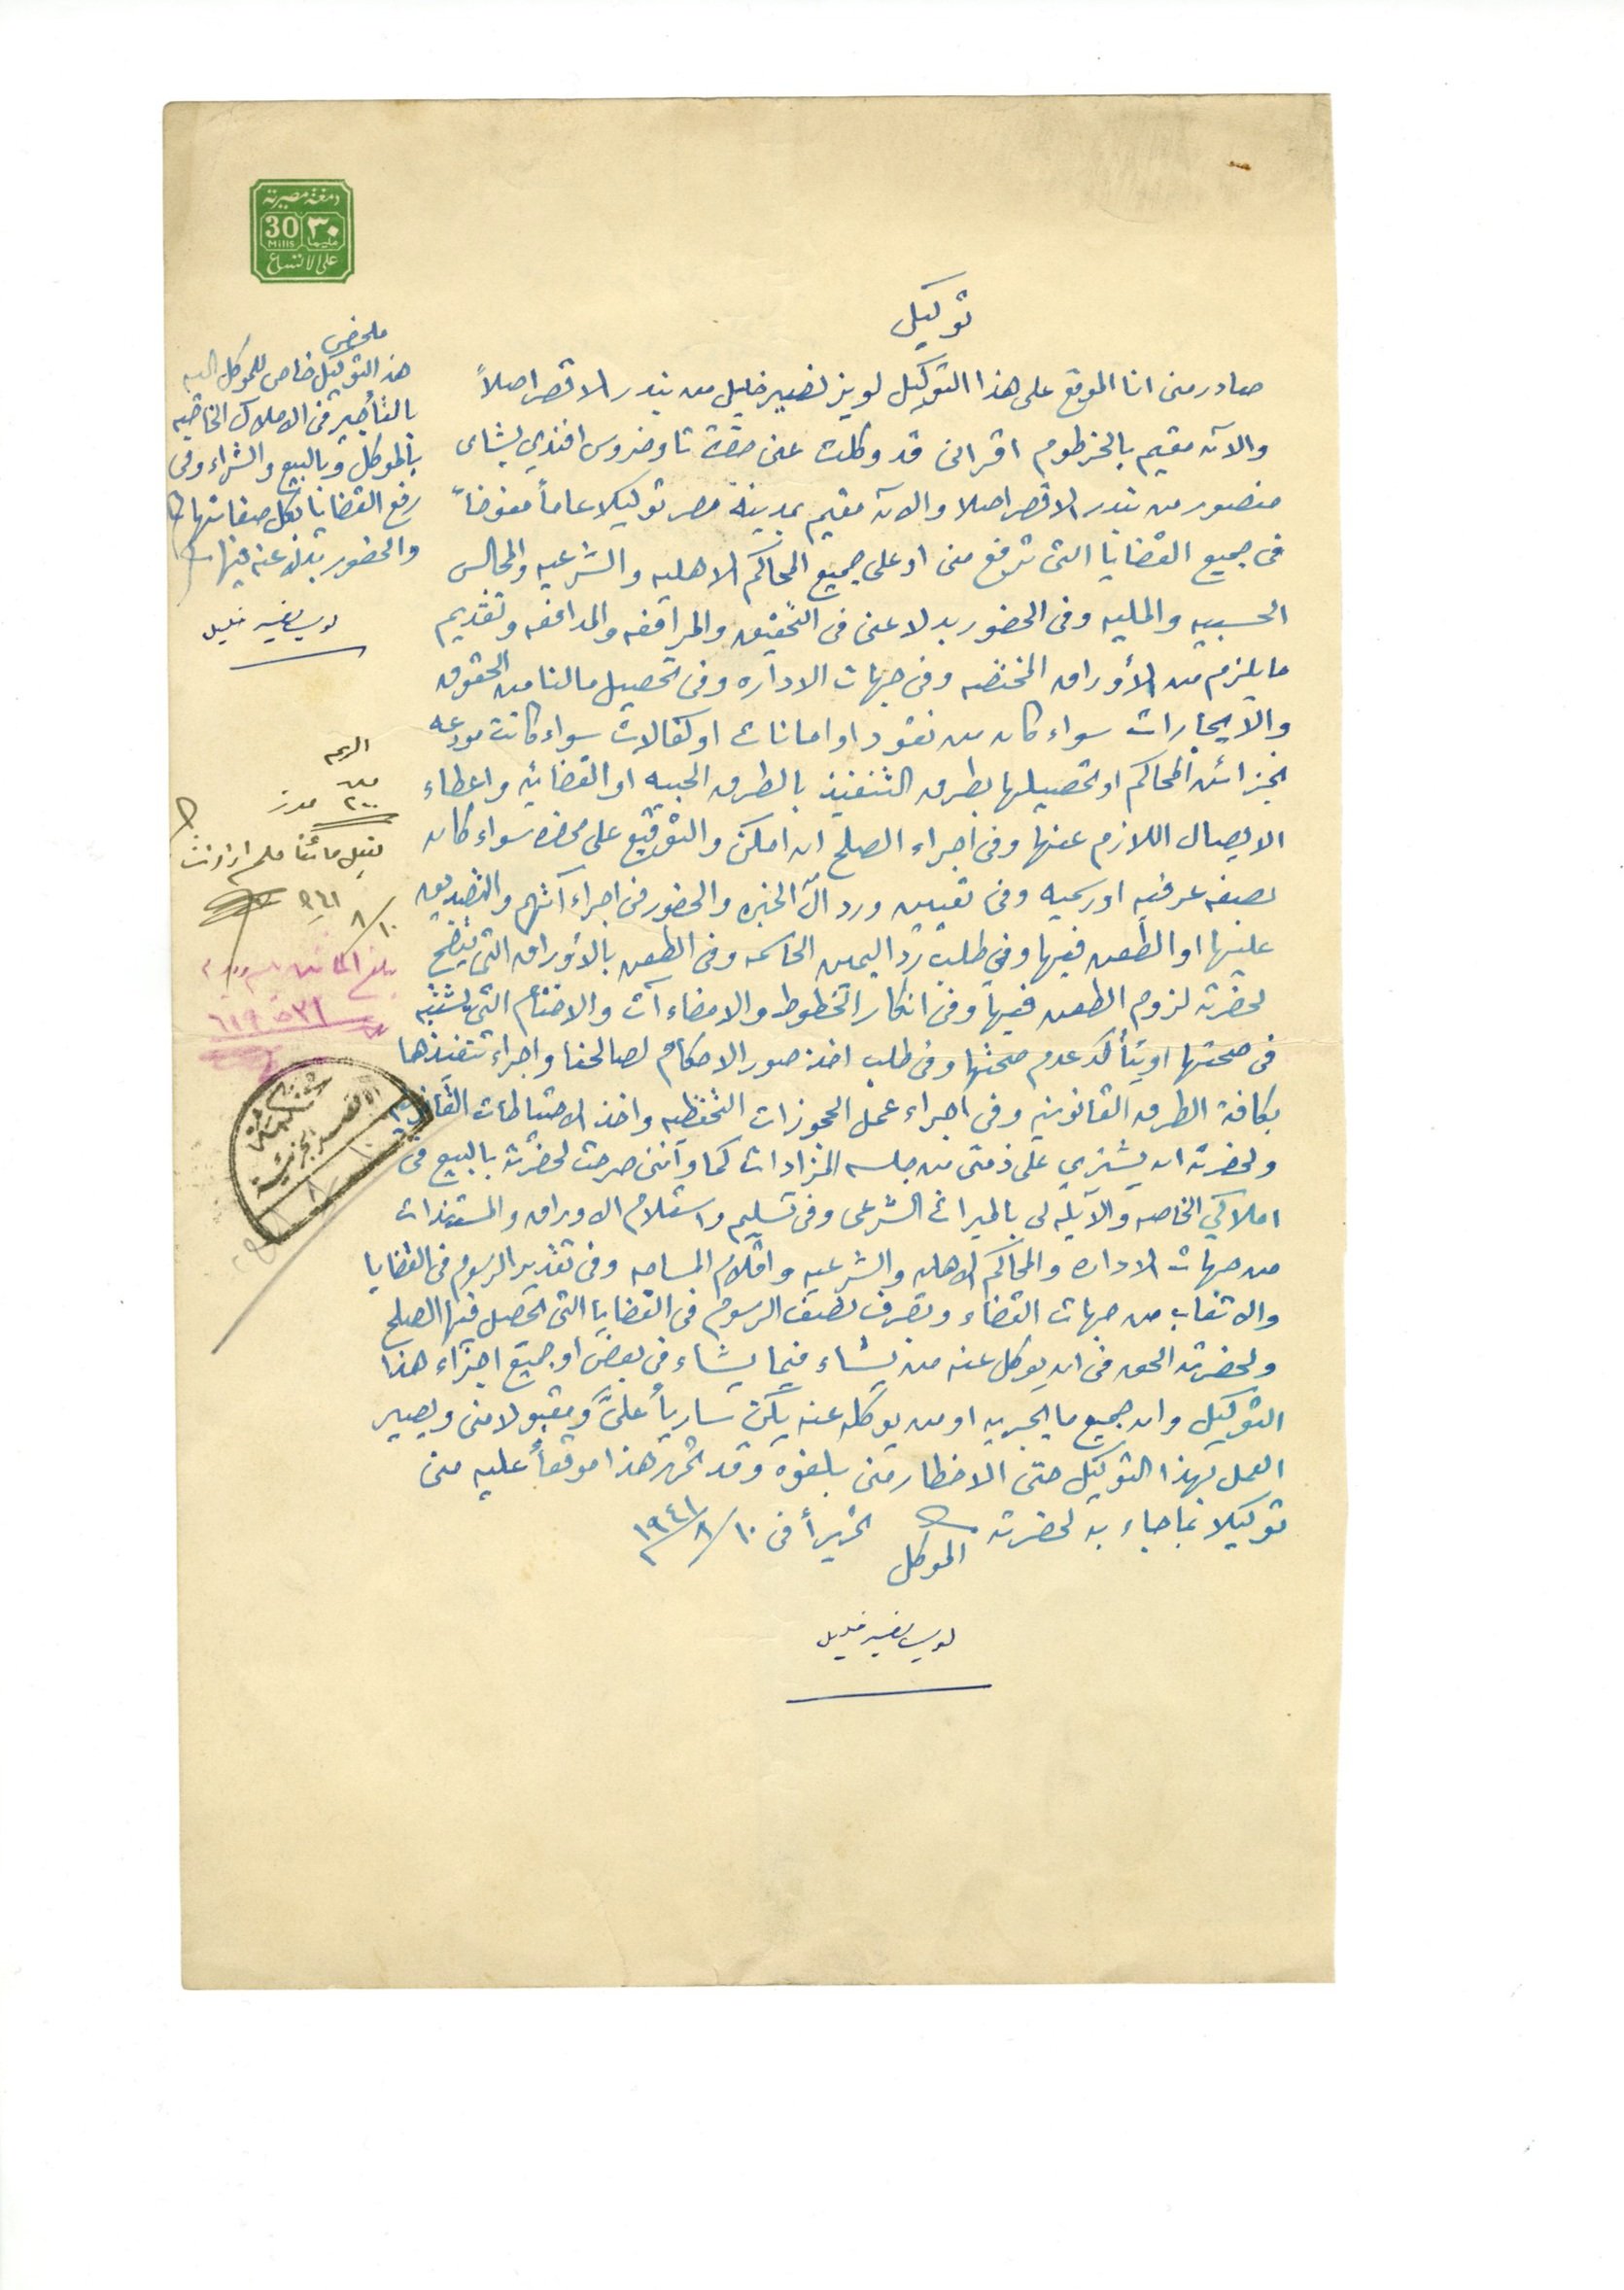 دمغة مصرية
30 ٣٠
Mills مليما
على الاتساع
توكيل
صادر منى انا الموقع على هذا التوكيل لويز نصير خليل من بندر الاقصر اصلاً
والآن مقيم بالخرطوم اقر انى قد وكلت عنى حضرة تاوضروس افندي بشاى
منصور من بندر الاقصر اصلا والآن مقيم بمدينة مصر توكيلا عاماً مفوضاً
فى جميع القضايا التى ترفع منى او على جميع المحاكم الاهليه والشرعيه والمجالس
الحسبيه والمليه وفى الحضور بدلا عنى فى التحقيق والمرافعه والمدافعه وتقديم
ما يلزم من الأوراق المختصه وفى جهات الاداره وفى تحصيل مالنا من الحقوق
والآيجارات سواء كان من نقود او امانات او كفالات سواء كانت مودعه
بخزائن المحاكم او تحصيلها بطرق التنفيذ بالطرق الجبيه او القضائيه واعطاء
الايصال اللازم عنها وفى اجراء الصلح ان امكن والتوقيع على محضره سواء كان
بصفه عرفيه او رسميه وفى تعيين ورد آل الخبره والحضور فى اجراءآتهم والتصديق
عليها او الطعن فيها وفى طلب رد اليمين الحاسمه وفى الطعن بالأوراق التى يتضح
لحضرته لزوم الطعن فيها وفى انكار الخطوط والامضاءآت والاختام التى يشتبه
فى صحتها او يتأكد عدم صحتها وفى طلب اخذ صور الاحكام لصالحنا واجراء تنفيذها
بكافة الطرق القانونيه وفى اجراء عمل الحجوزات التحفظيه واخذ الاحتياطات القانونيه
ولحضرته ان يشتري على ذمتى من جلسه المزادات كما واننى صرحت لحضرته بالبيع فى
املاكي الخاصه والآيله لى بالميراث الشرعى وفى تسليم واستلام الاوراق والمستندات
من جهات الاداره والمحاكم الاهليه والشرعيه واقلام المساحه وفى تقدير الرسوم فى القضايا
والاتعاب من جهات القضاء وبصرف نصف الرسوم فى القضايا التى تحصل فيها الصلح
ولحضرته الحق فى ان يوكل عنه من يشاء فيما يشاء فى بعض او جميع اجزاء هذا
التوكيل وان جميع ما يجريه او من يوكله عنه يكن سارياً علىَّ ومقبولا منى ويصير
العمل بهذا التوكيل حتى الاخطار منى بلغوه وقد تحرر هذا موقعاً عليه منى
توكيلا بما جاء به لحضرته تحريراً فى ١٠/٨/١٩٤١
الموكل
لويس نصير خليل
ملحوض
هذا التوكيل خاص للموكل اليه
بالتأجير فى الاملاك الخاصه
بالموكل وبالبيع والشراء وفى
رفع القضايا بكل صفاتها
والحضور بدلا عنه فيها
لويس نصير خليل
الرسم
٢٠٠
٨/١٠
٦١٩٥٣١
محكمة
الاقصر الجزئية